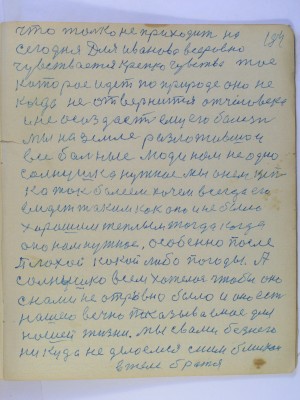 что толко не приходит на
184
сегодня Для иванова всеровно
чувствается крепко чувство тое
которое идет по природе оно не
когда не отвернится от человека
и не осаздаст ему его болезн
мы на земле разложившои
все болные люди нам не одно
солнушка нужное мы о нем креп-
ко тоже болеем хочем всегда его
видет таким как оно и не было
хорошим теплым тогда когда
оно нам нужное, особенно после
плохой какой либо погоды. А
солнушко всем хотелося чтобы оно
с нами не отровно было и оно есть
нашею вечно показываемое для
нашей жизни. Мы с вами без него
никуда не делаемся с ним близкая
в теле братья